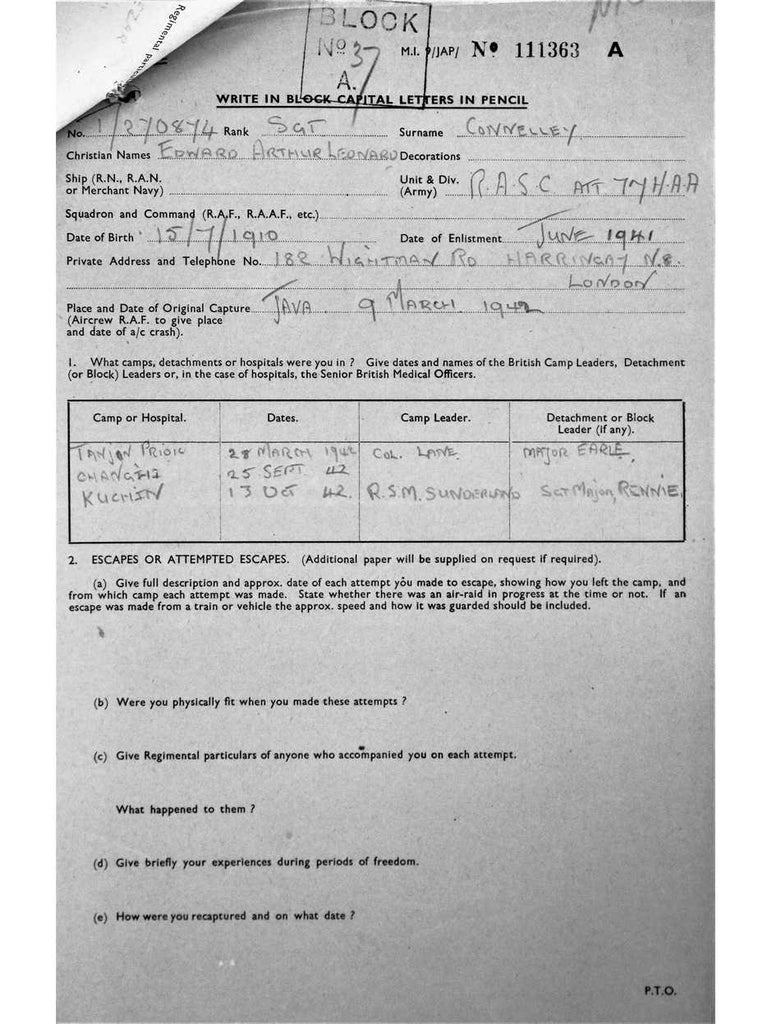 Regimental
BLOCK
No 37
A.
M.I. 9/JAP/ No 111363 A
WRITE IN BLOCK CAPITAL LETTERS IN PENCIL
No. 1/270874 Rank SGT Surname CONNELLEY
Christian Names EDWARD ARTHUR LEONARD Decorations
Ship (R.N., R.A.N. or Merchant Navy) Unit & Div. (Army) R.A.S.C ATT 77 H.A.A
Squadron and Command (R.A.F., R.A.A.F., etc.)
Date of Birth 15/7/1910 Date of Enlistment JUNE 1941
Private Address and Telephone No. 182 WIGHTMAN RD HARRINGAY N.8.
LONDON
Place and Date of Original Capture JAVA 9 MARCH 1942
(Aircrew R.A.F. to give place
and date of a/c crash).
1. What camps, detachments or hospitals were you in ? Give dates and names of the British Camp Leaders, Detachment
(or Block) Leaders or, in the case of hospitals, the Senior British Medical Officers.
Camp or Hospital. Dates. Camp Leader. Detachment or Block Leader (if any).
TANJON PRIOK 28 MARCH 1942 COL. LANE. MAJOR EARLE,
CHANGHI 25 SEPT 42
KUCHIN 13 OCT 42. R.S.M. SUNDERLAND SGT Major, RENNIE.
2. ESCAPES OR ATTEMPTED ESCAPES. (Additional paper will be supplied on request if required).
(a) Give full description and approx. date of each attempt you made to escape, showing how you left the camp, and
from which camp each attempt was made. State whether there was an air-raid in progress at the time or not. If an
escape was made from a train or vehicle the approx. speed and how it was guarded should be included.
(b) Were you physically fit when you made these attempts ?
(c) Give Regimental particulars of anyone who accompanied you on each attempt.
What happened to them ?
(d) Give briefly your experiences during periods of freedom.
(e) How were you recaptured and on what date ?
P.T.O.